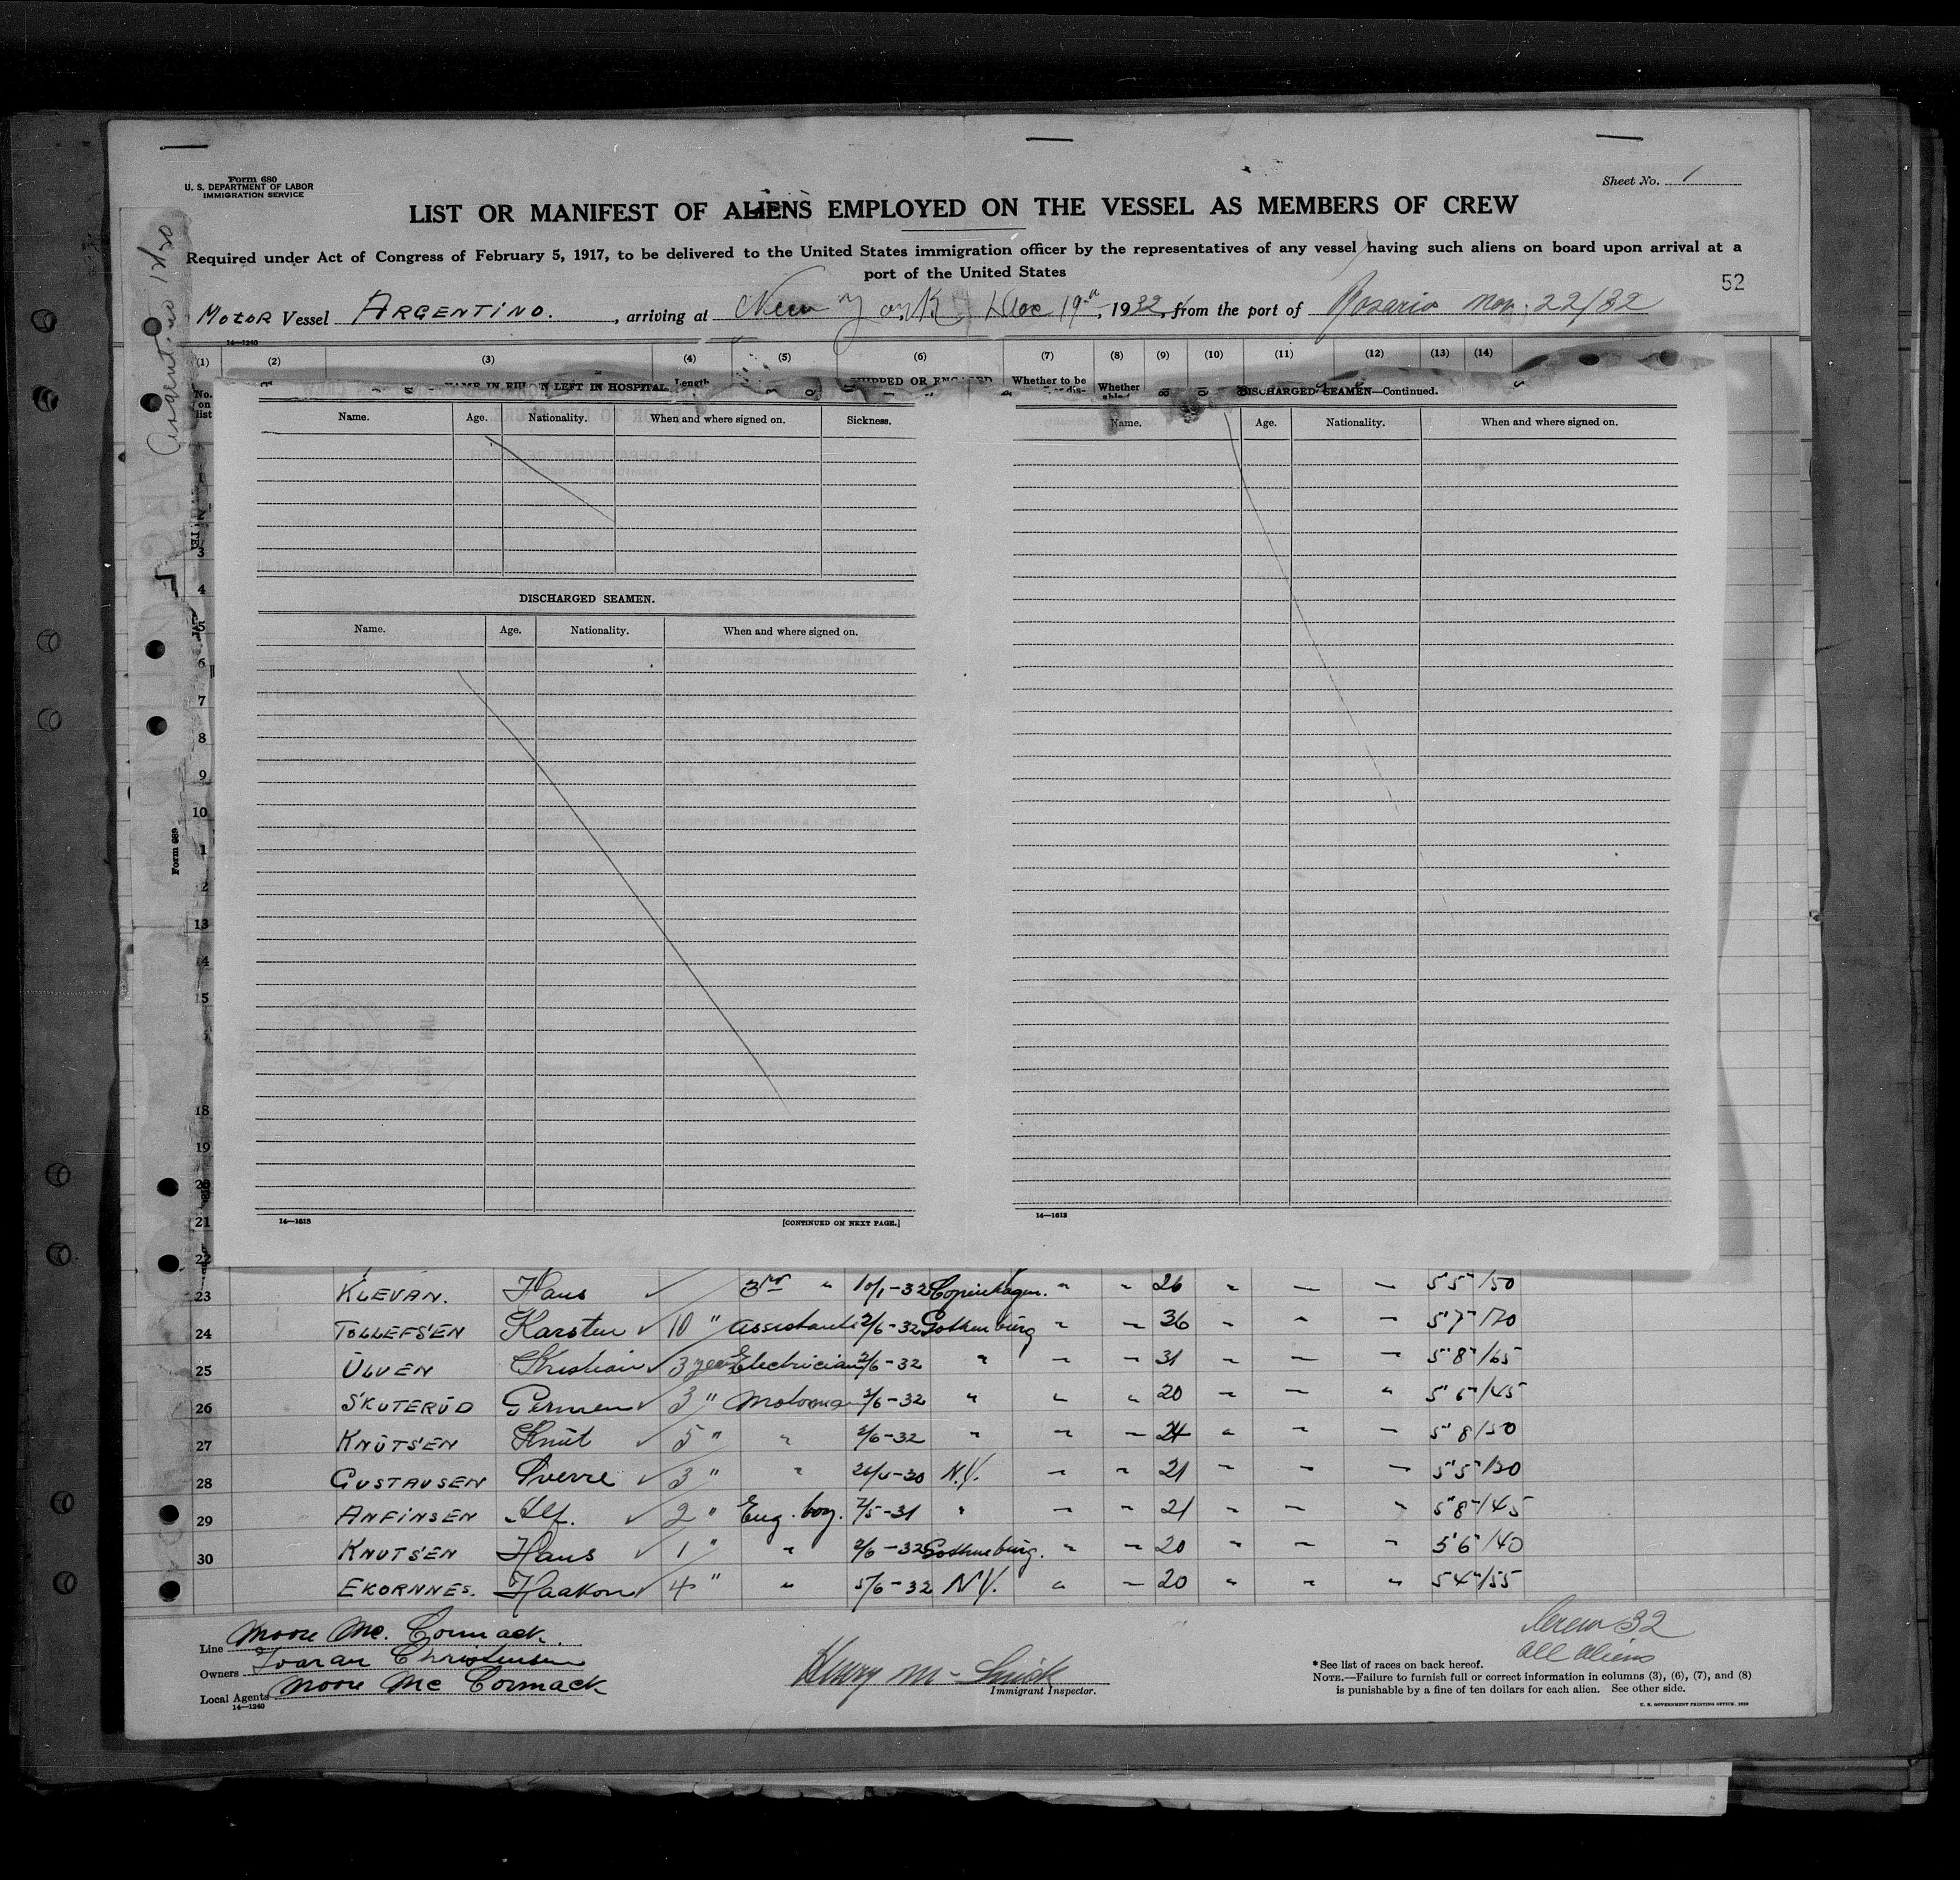 Form 680
U. S. DEPARTMENT OF LABOR
IMMIGRATION SERVICE
Sheet No. 1
LIST OR MANIFEST OF ALIENS EMPLOYED ON THE VESSEL AS MEMBERS OF CREW
Required under Act of Congress of February 5, 1917, to be delivered to the United States immigration officer by the representatives of any vessel having such aliens on board upon arrival at a
port of the United States
52
MOTOR Vessel ARGENTINO. , arriving at New York Dec 19th, 1932, from the port of Rosario Nov. 22/32
14—1240
(1) (2) (3) (4) (5) (6) (7) (8) (9) (10) (11) (12) (13) (14)
No. on list
Length
Whether to be
Whether
LEFT IN HOSPITAL.
Name. Age. Nationality. When and where signed on. Sickness.
DISCHARGED SEAMEN.
Name. Age. Nationality. When and where signed on.
14—1613 [CONTINUED ON NEXT PAGE.]
DISCHARGED SEAMEN—Continued.
Name. Age. Nationality. When and where signed on.
14—1613
Form 689
3
4
5
6
7
8
9
10
13
14
15
18
19
20
21
22
23 KLEVAN. Hans 3rd " 10/1-32 Copenhagen. " " 26 " — — 5'5" 150
24 TOLLEFSEN Karsten 10 " Assistant 2/6-32 Gothenburg " — 36 - - - 5'7" 170
25 ULVEN Kristian 3 years Electrician 2/6-32 " — — 31 - — — 5'8" 165
26 SKUTERUD 3 " Motorman 2/6-32 " " " 20 — — " 5'6" 145
27 KNUTSEN Knut 5 " " 2/6-32 " — — 24 " — — 5'8 150
28 GUSTAVSEN Sverre 3 " " N.Y. — " 21 - - — 5'5"
29 ANFINSEN Alf. 2 " Eng. boy. 7/5-31 " — " 21 - — " 5'8" 145
30 KNUTSEN Hans 1 " " 2/6-32 Gothenburg. " — 20 " — — 5'6" 140
EKORNNES. Haakon 4 " " 5/6-32 N.Y. " — 20 " " " 5'4" 155
Line Moore Mc. Cormack.
Owners Ivaran Christensen
Local Agents Moore Mc Cormack
14—1240
Immigrant Inspector.
Crew 32
all aliens
*See list of races on back hereof.
NOTE.—Failure to furnish full or correct information in columns (3), (6), (7), and (8)
is punishable by a fine of ten dollars for each alien. See other side.
U. S. GOVERNMENT PRINTING OFFICE: 1929